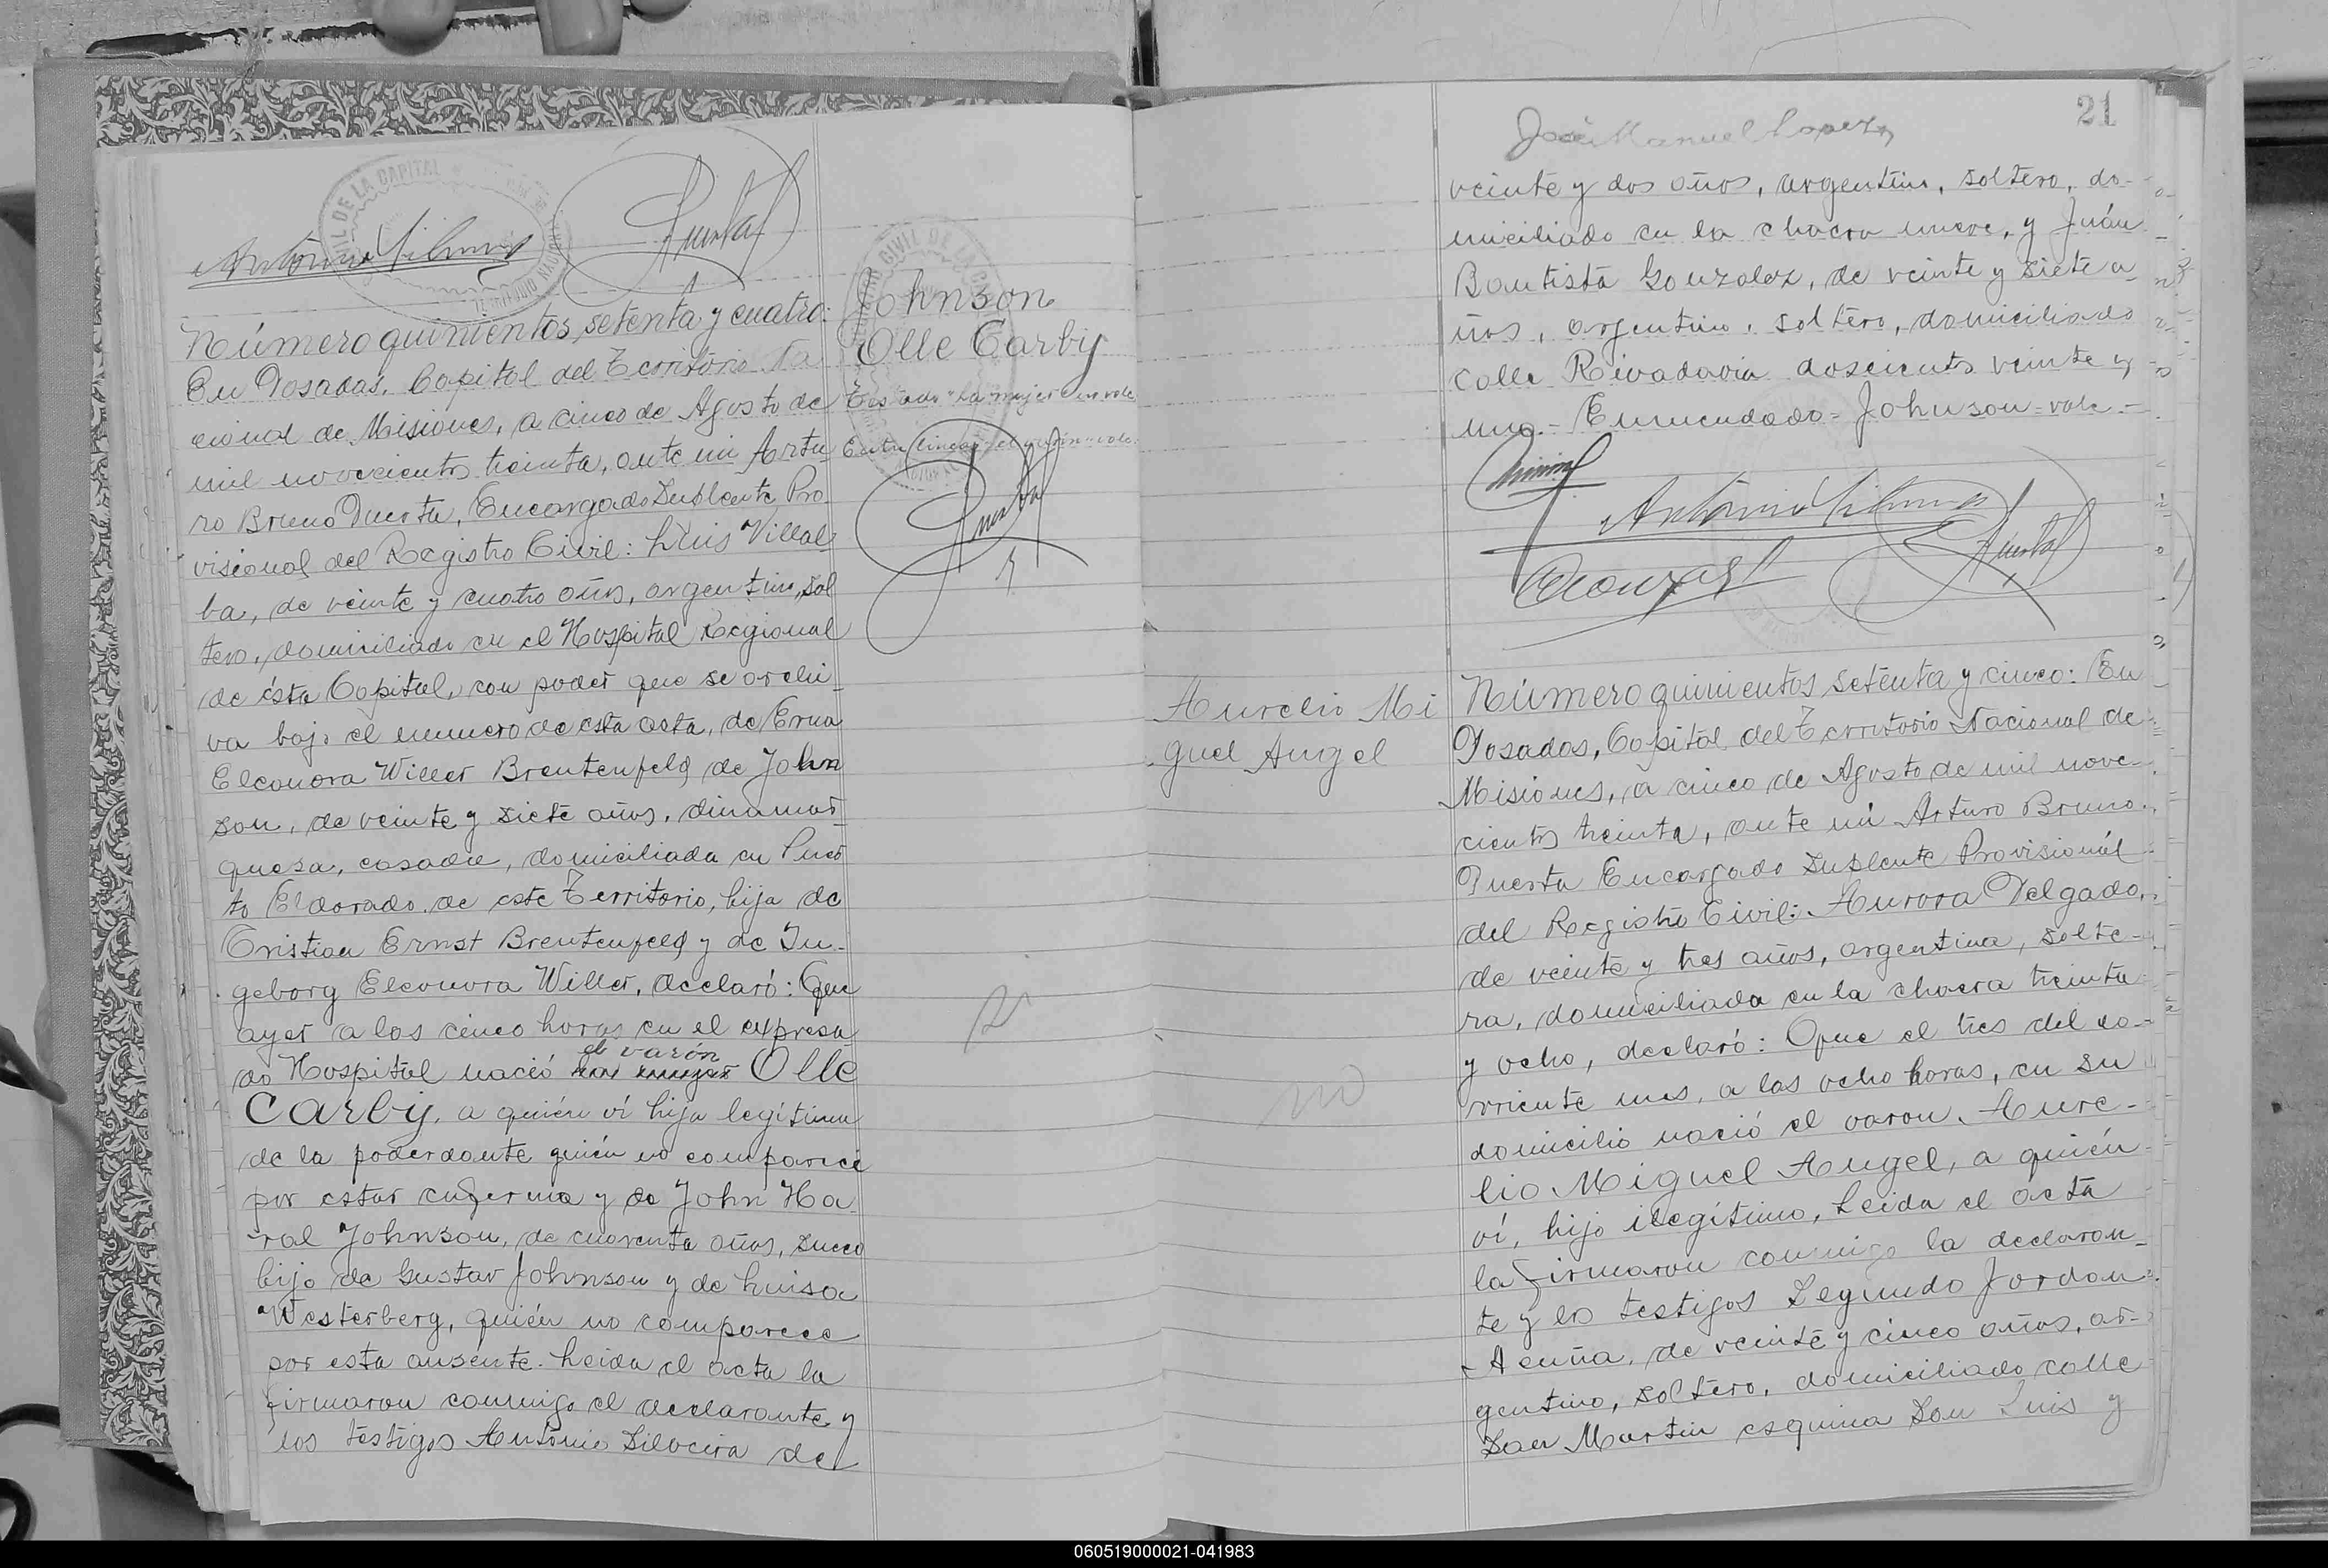 Antonio Silveira
Puerta
Número quinientos setenta y cuatro:
En Posadas, Capital del Territorio Na
cional de Misiones, a cinco de Agosto de
mil novecientos treinta, ante mi Artu
ro Bruno Puerta, Encargado Suplente Pro
visional del Registro Civil: Luis Villal
ba, de veinte y cuatro años, argentino, sol
tero, domiciliado en el Hospital Regional
de ésta Capital, con poder que se archi
va bajo el numero de esta acta, de Erna
Eleonora Willer Brentenfeld de John
son, de veinte y siete años, dinamar
quesa, casada, domiciliada en Puer
to Eldorado de este Territorio, hija de
Cristian Ernst Brentenfeld y de In-
geborg Eleonora Willer, declaró: Que
ayer a las cinco horas en el expresa
el varón
do Hospital nació la mujer Olle
Carby, a quién ví hija legítima
de la poderdante quién no comparece
por estar enferma y de John Ha
ral Johnson, de cuarenta años, sueco
hijo de Gustav Johnson y de Luisa
Westerberg, quién no comparece
por esta ausente. Leida el acta la
firmaron conmigo el declarante y
los testigos Antonio Silveira de
Johnson
Olle Carby
Testado "la mujer" no vale
Entre lineas "el varón" vale.
Puerta
si
21
José Manuel Lopez
veinte y dos años, argentino, soltero, do-
miciliado en la chacra nueve, y Juán
Bautista Gonzalez, de veinte y siete a
ños, argentino, soltero, domiciliado
calle Rivadavia doscientos veinte y
uno.- Enmendado = Johnson = vale -
Antonio Silveira
Gonzalez
Puerta
Aurelio Mi
guel Angel
no
Número quinientos setenta y cinco: En
Posadas, Capital del Territorio Nacional de
Misiones, a cinco de Agosto de mil nove-
cientos treinta, ante mi Arturo Bruno
Puerta Encargado Suplente Provisionál
del Registro Civil: Aurora Delgado,
de veinte y tres años, argentina, solte-
ra, domiciliada en la chacra treinta
y ocho, declaró: Que el tres del co-
rriente mes, a las ocho horas, en su
domicilio nació el varon Aure-
lio Miguel Angel, a quién
ví, hijo ilegítimo, Leida el acta
la firmaron conmigo la declaran-
te y los testigos Segundo Jordan
Acuña, de veinte y cinco años, ar-
gentino, soltero, domiciliado calle
San Martin esquina San Luis y
060519000021-041983